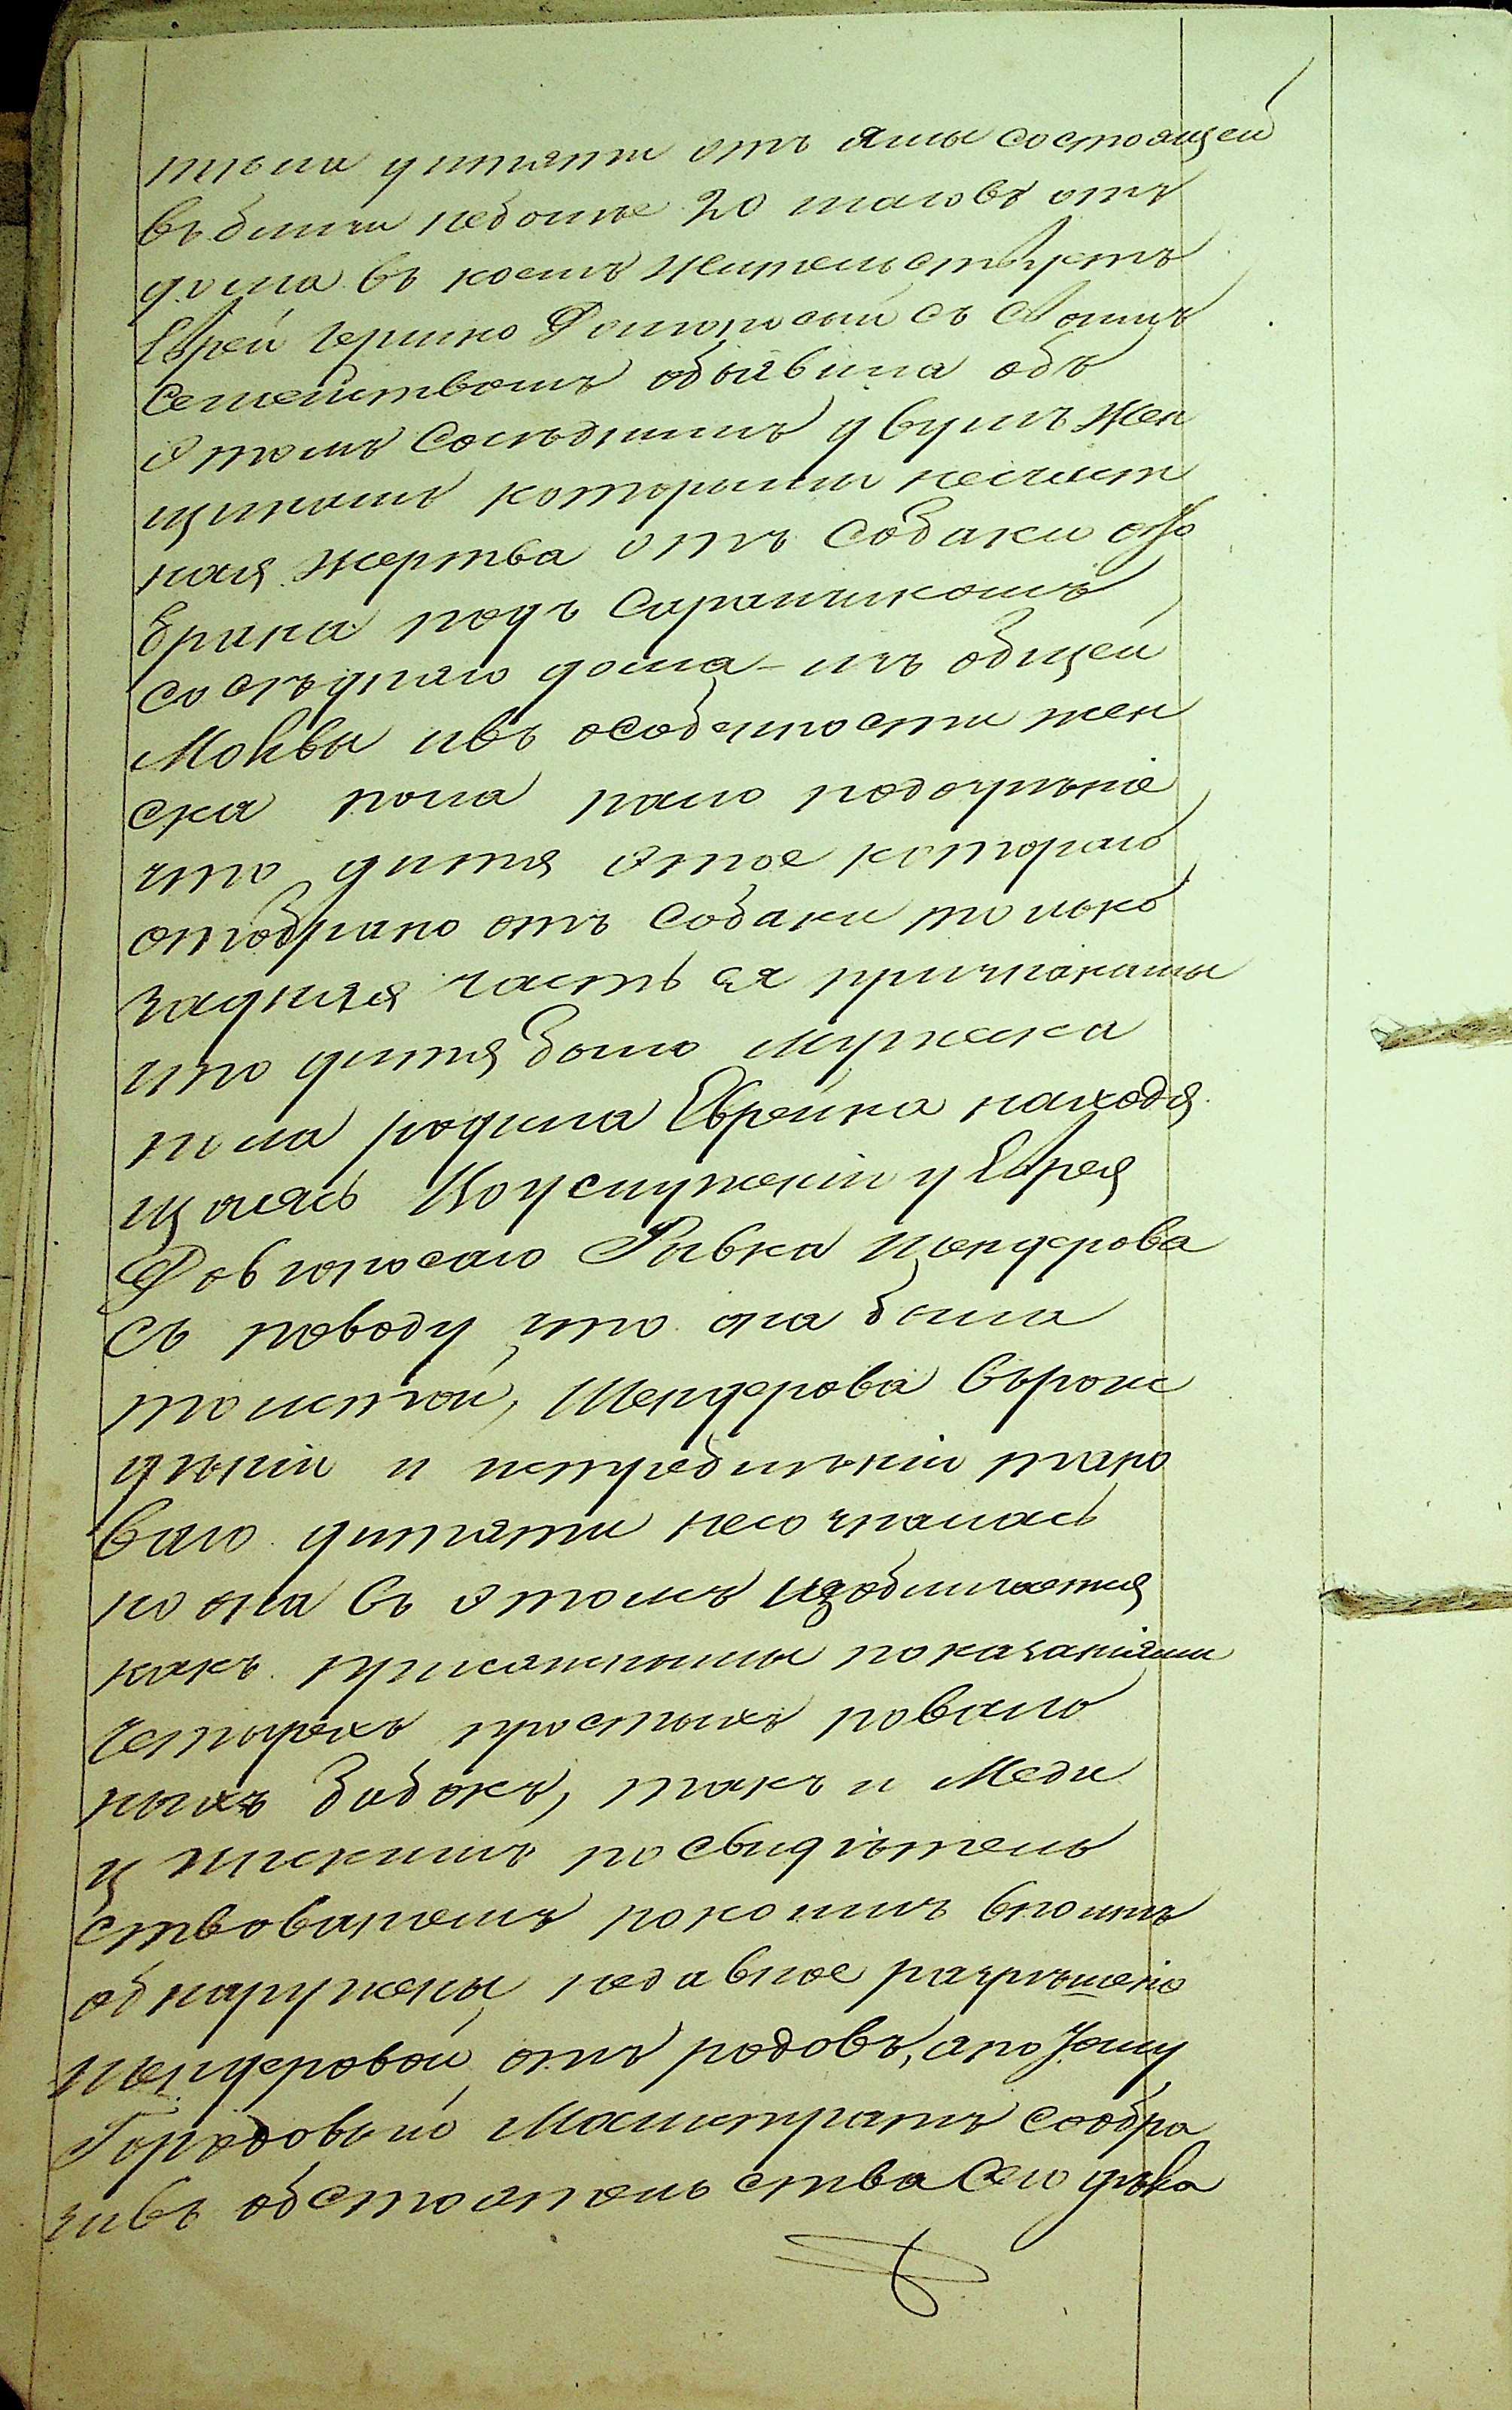 тѣла дитяти отъ ямы состоящей
въ близи неболее 20 шаговъ отъ
дома въ коемъ жительствуетъ
Еврей Гершко Довгоносый съ своимъ
семействомъ объявила объ
этомъ сосѣднимъ двумъ жен
щинамъ которыми несчаст
ная жертва отъ собаки ото
брана подъ сарайчикомъ
сосѣдняго дома – изъ общей
молвы ивъ особенности жен
ска пола пало подозрѣніе
что дитя этое котораго
отобрано отъ собаки только
задняя часть ея признаками
что дитя было мужеска
пола родила Еврейка находя
щаясь въ услуженіи у Еврея
Довгоносаго Рывка Шендерова
съ поводу что она была
толстой, Шендерова въ рож
дѣніи и истребилѣніи тако
ваго дитяти несозналась
но она въ этомъ изобличается
какъ присяжными показаніями
четырехъ простыхъ поваль
ныхъ бабокъ, такъ и Меди
цинскимъ посвидѣтель
ствованемъ по коимъ вполнѣ
обнаружены недавное разрѣшеніе
Шендеровой отъ родовъ, а по сему
Городовый Магистратъ сообра
зивъ обстоятельства сего дѣла